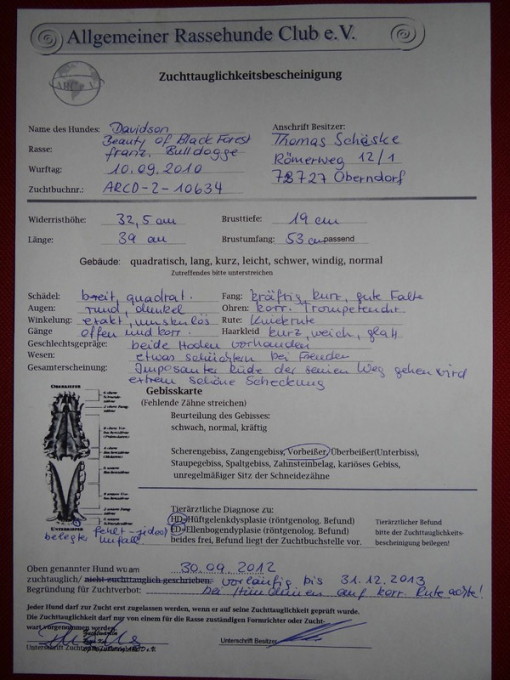 Allgemeiner Rassehunde Club e.V.
Zuchttauglichkeitsbescheinigung
Name des Hundes: Davidson
Beauty of Black Forest
Rasse: franz. Bulldogge
Wurftag: 10.09.2010
Zuchtbuchnr.: ARCD-Z-10634
Anschrift Besitzer:
Thomas Schäske
Römerweg 12/1
78727 Oberndorf
Widerristhöhe: 32,5 cm Brusttiefe: 19 cm
Länge: 39 cm Brustumfang: 53 cm passend
Gebäude: quadratisch, lang, kurz, leicht, schwer, windig, normal
Zutreffendes bitte unterstreichen
Schädel: breit, quadrat. Fang: kräftig, kurz, gute Falte
Augen: rund, dunkel Ohren: korr. Trompetenohr
Winkelung: exakt, muskulös Rute: Knickrute
Gänge offen und korr. Haarkleid kurz, weich, glatt
Geschlechtsgepräge: beide Hoden vorhanden
Wesen: etwas schüchtern bei Fremden
Gesamterscheinung: Imposanter Rüde der seinen Weg gehen wird
extrem schöne Scheckung
Gebisskarte
(Fehlende Zähne streichen)
Beurteilung des Gebisses:
schwach, normal, kräftig
Scherengebiss, Zangengebiss, Vorbeißer, Oberbeißer(Unterbiss),
Staupegebiss, Spaltgebiss, Zahnsteinbelag, kariöses Gebiss,
unregelmäßiger Sitz der Schneidezähne
OBERKIEFER
UNTERKIEFER
fehlt
Unfall
Tierärztliche Diagnose zu:
HD=Hüftgelenkdysplasie (röntgenolog. Befund)
ED=Ellenbogendysplasie (röntgenolog. Befund)
beides frei, Befund liegt der Zuchtbuchstelle vor.
Tierärztlicher Befund
bitte der Zuchttauglichkeits-
bescheinigung beilegen!
Oben genannter Hund wu am 30.09.2012
zuchtauglich/ nicht zuchttauglich geschrieben. vorläufig bis 31.12.2013
Begründung für Zuchtverbot: bei Hündinnen auf korr. Rute achte!
Jeder Hund darf zur Zucht erst zugelassen werden, wenn er auf seine Zuchttauglichkeit geprüft wurde.
Die Zuchttauglichkeit darf nur von einem für die Rasse zuständigen Formrichter oder Zucht-
wart vorgenommen werden.
Unterschrift Besitzer